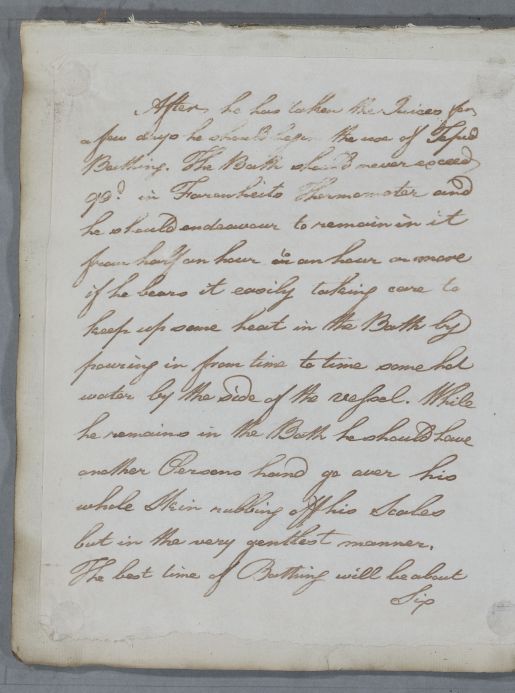 After he has taken the Juices for
a few days he should begin the use of Tepid
Bathing. The Bath should never exceed
90.° in Farenheits Thermometer and
he should endeavour to remain in it
from half an hour to an hour or more
if he bears it easily taking care to
keep up same heat in the Bath by
pouring in from time to time some hot
water by the side of the vessel. While
he remains in the Bath he should have
another Persons hand go over his
whole Skin rubbing off his Scales
but in the very gentlest manner.
The best time of Bathing will be about
Six